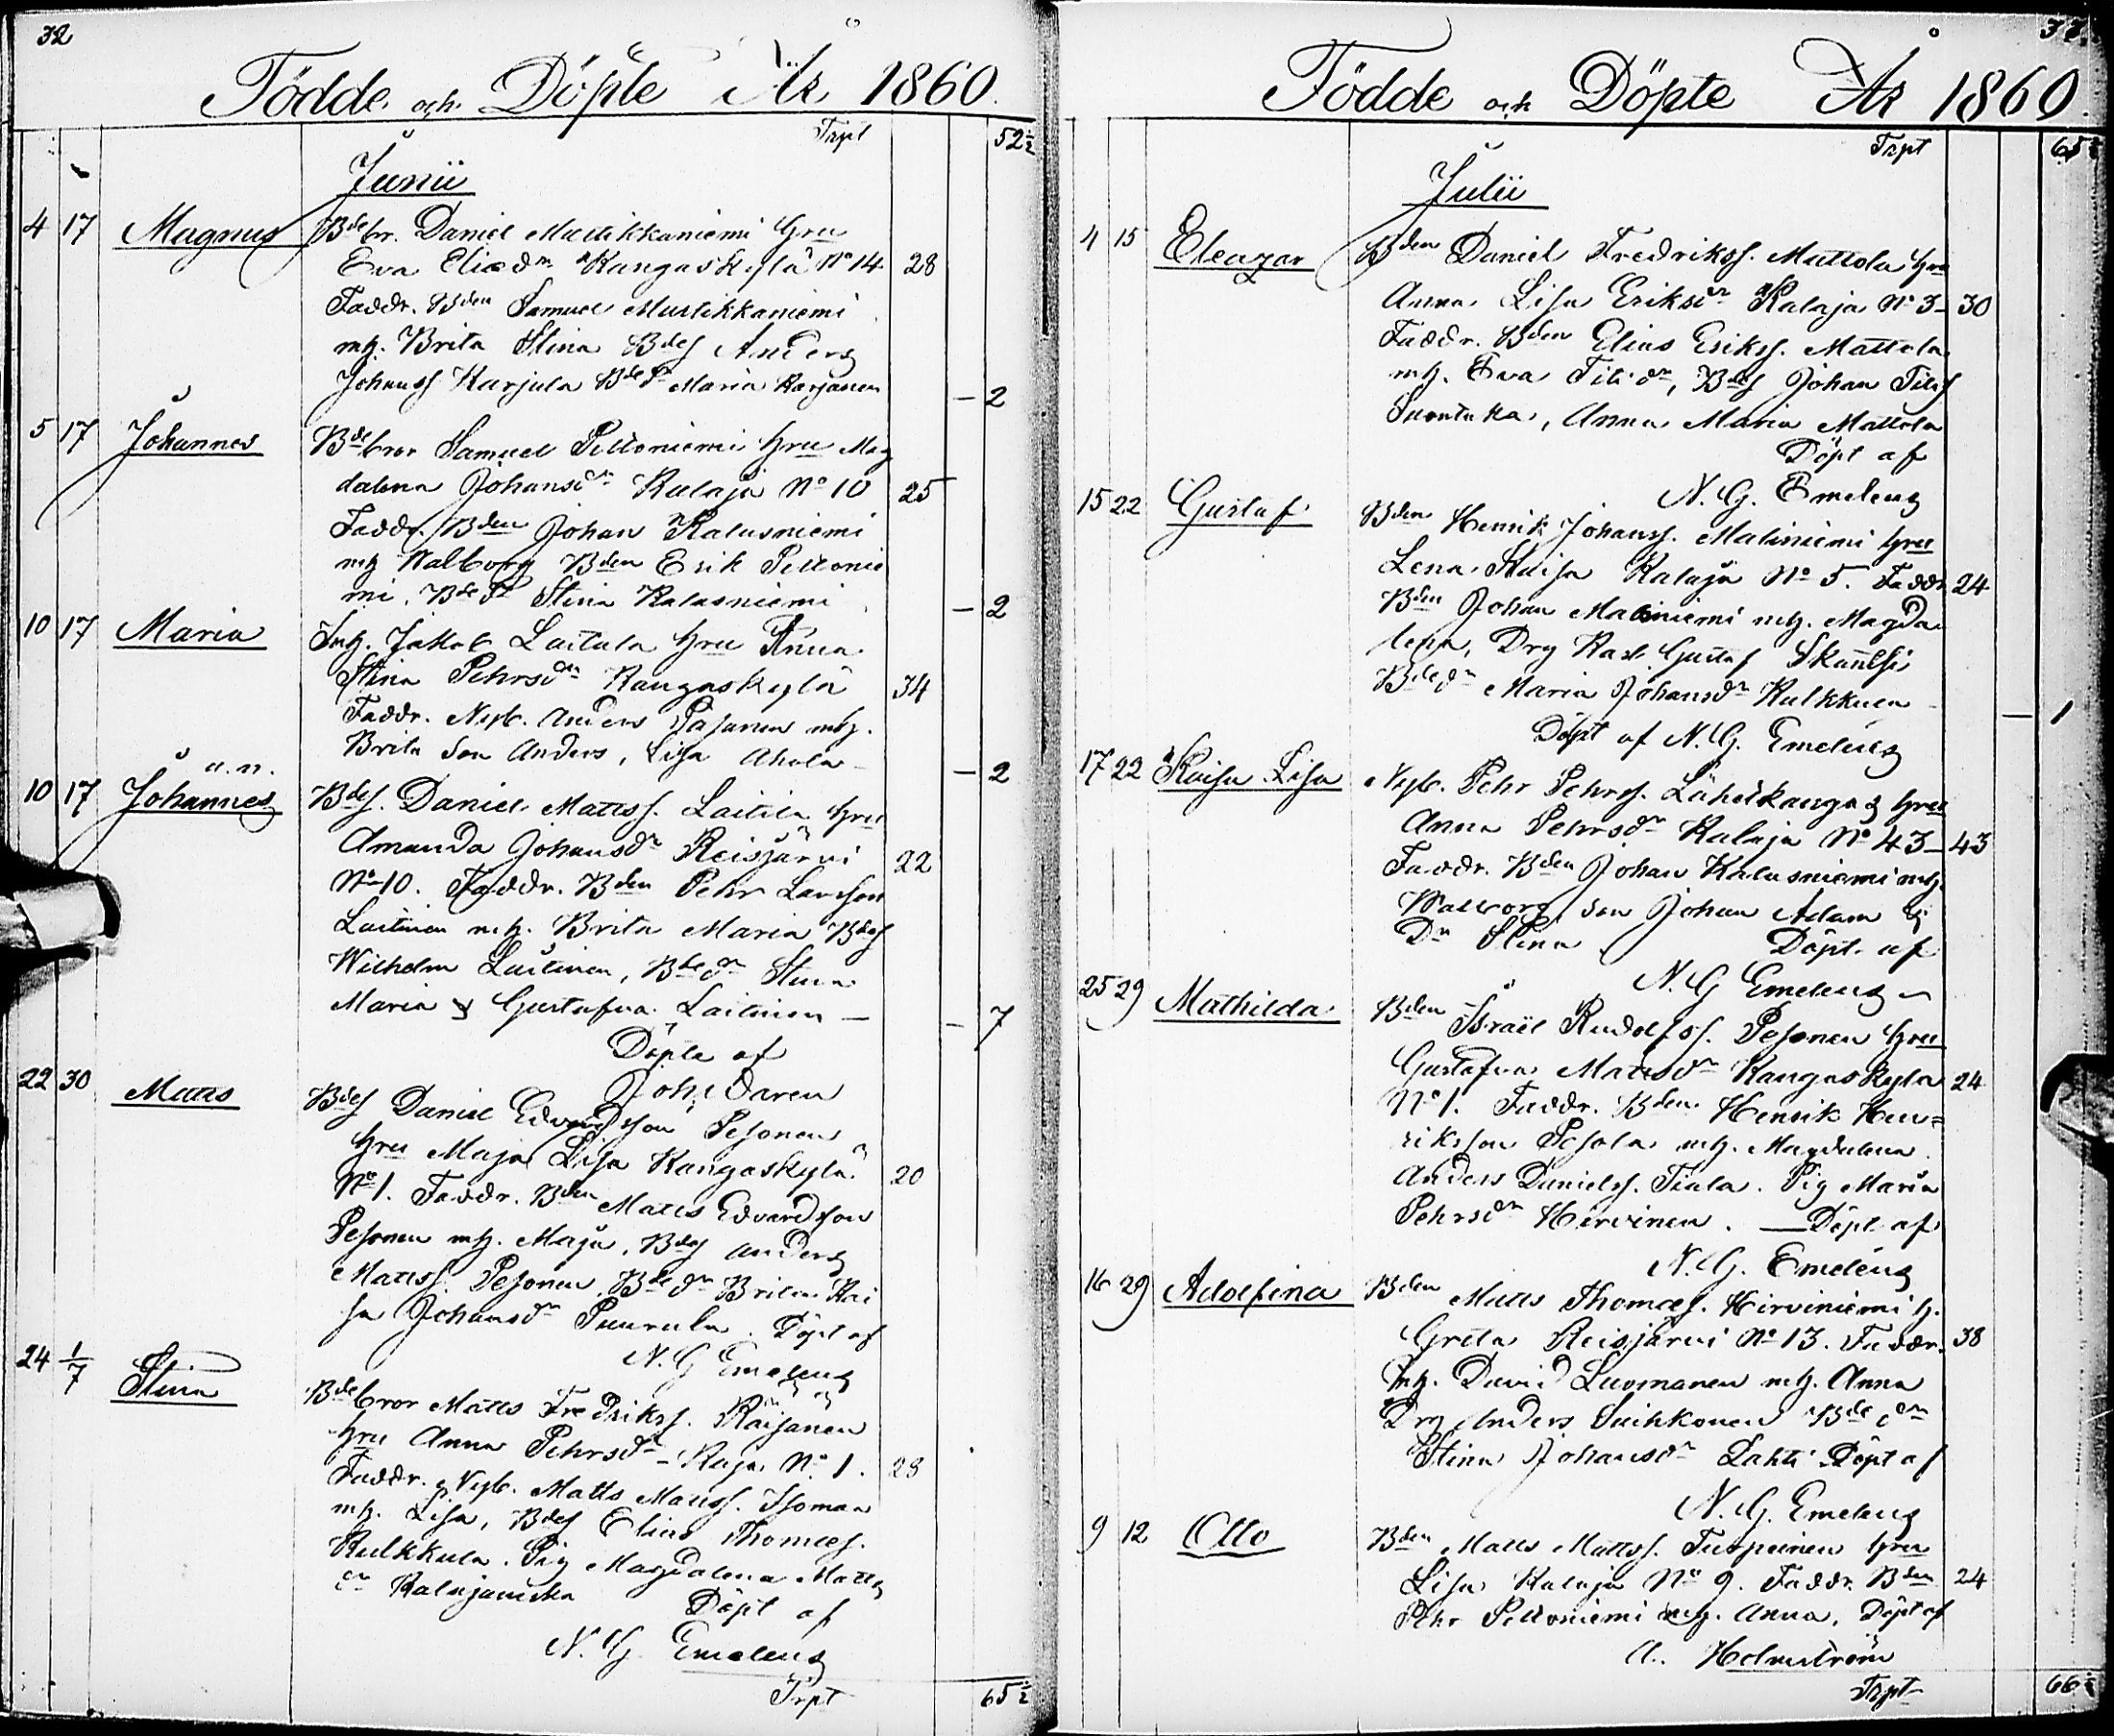 32
Födde och Döpte År 1860.
Trpt 52½
Junii
4 17 Magnus Bdebr. Daniel Mustikkaniemi Hru
Eva Eliædr Kangaskylä No 14 28
Faddr. Bden Samuel Mustikkaniemi
mh. Brita Stina Bdes Anders
Johanss Karjula Bdedr Maria Karjanen — 2
5 17 Johannes Bdebror Samuel Peltoniemi hru Mag
dalena Johansdr Kalaja No 10 25
Faddr. Bden Johan Kalusniemi
mh Walborg Bden Erik Peltonie
mi, Bdedr Stina Kalusniemi — 2
10 17 Maria Inh. Jakob Laitala hru Anna
Stina Pehrsdr Kangaskylä 34
Faddr. Nyb. Anders Pasanen mh.
Brita Son Anders, Lisa Ahola — 2
u.n.
10 17 Johannes Bdes. Daniel Mattss. Laitila hru
Amanda Johansdr Reisjärvi 22
No 10. Faddr. Bden Pehr Larsson
Laitinen mh. Brita Maria Bdes
Wilhelm Laitinen, Bdedr Stina
Maria & Gustafva Laitinen — — 7
Döpte af
Joh. Daren
22 30 Matts Bdes Daniel Edvardsson Pesonen
hru Maja Lisa Kangaskylä 20
No 1. Faddr. Bden Matts Edvardsson
Pesonen mh. Maja, Bdes Anders
Mattss. Pesonen, Bdedr Brita Kai
sa Johansdr Puurula. Döpt af
N. G Emeleus
24 1/7 Stina Bdebror Matts Fredrikss. Räisänen
hru Anna Pehrsdr Raja No 1. 28
Faddr. Nyb. Matts Mattss. Isomaa
mh. Lisa, Bdes Elias Thomæs.
Kulkkula. Pig Magdalena Matts
dr Kalajanska Döpt af
N. G Emeleus
Trpt 65½
Födde och Döpte År 1860.
Trpt 65½
Julii
4 15 Eleazar Bden Daniel Fredrikss. Mattola hru
Anna Lisa Eriksdr Kalaja No 3— 30
Faddr. Bden Elias Erikss. Mattola
mh. Eva Titidr, Bdes Johan Titis
Suontaka, Anna Maria Mattola
Döpt af
N. G. Emeleus
15 22 Gustaf Bden Henrik Johanss. Matiniemi hru
Lena Kaisa Kalaja No 5. Faddr. 24
Bden Johan Matiniemi mh. Magda
lena, Drg Karl Gustaf
Bdedr Maria Johansdr Kulkkuen — — 1
Döpt af N. G. Emeleus
17 22 Kaisa Lisa Nyb. Pehr Pehrss. Lähetkangas hru
Anna Pehrsdr Kalaja No 43— 43
Faddr. Bden Johan Kalusniemi mh.
Walborg, Son Johan Adam &
Dr Stina Döpt. af
N. G Emeleus
25 29 Mathilda Bden Israël Rudolfss. Pesonen hru
Gustafva Mattsdr Kangaskylä 24
No 1. Faddr. Bden Henrik Hen=
riksson Pesola mh. Magdalena
Anders Danielss. Tiala. Pig Maria
Pehrsdr Hirvinen. — Döpt af
N. G. Emeleus
16 29 Adolfina Bden Matts Thomæs. Hirviniemi h.
Greta Reisjärvi No 13. Faddr. 38
Inh. David Luomanen mh. Anna
Drg Anders Suihkonen Bdedr
Stina Johansdr Lahti Döpt af
N. G. Emeleus
9 12 Otto Bden Matts Mattss. Turpeinen hru
Lisa Kalaja No 9. Faddr. Bden 24
Pehr Peltoniemi mh. Anna, Döpt af
A. Holmström
Trpt 66½